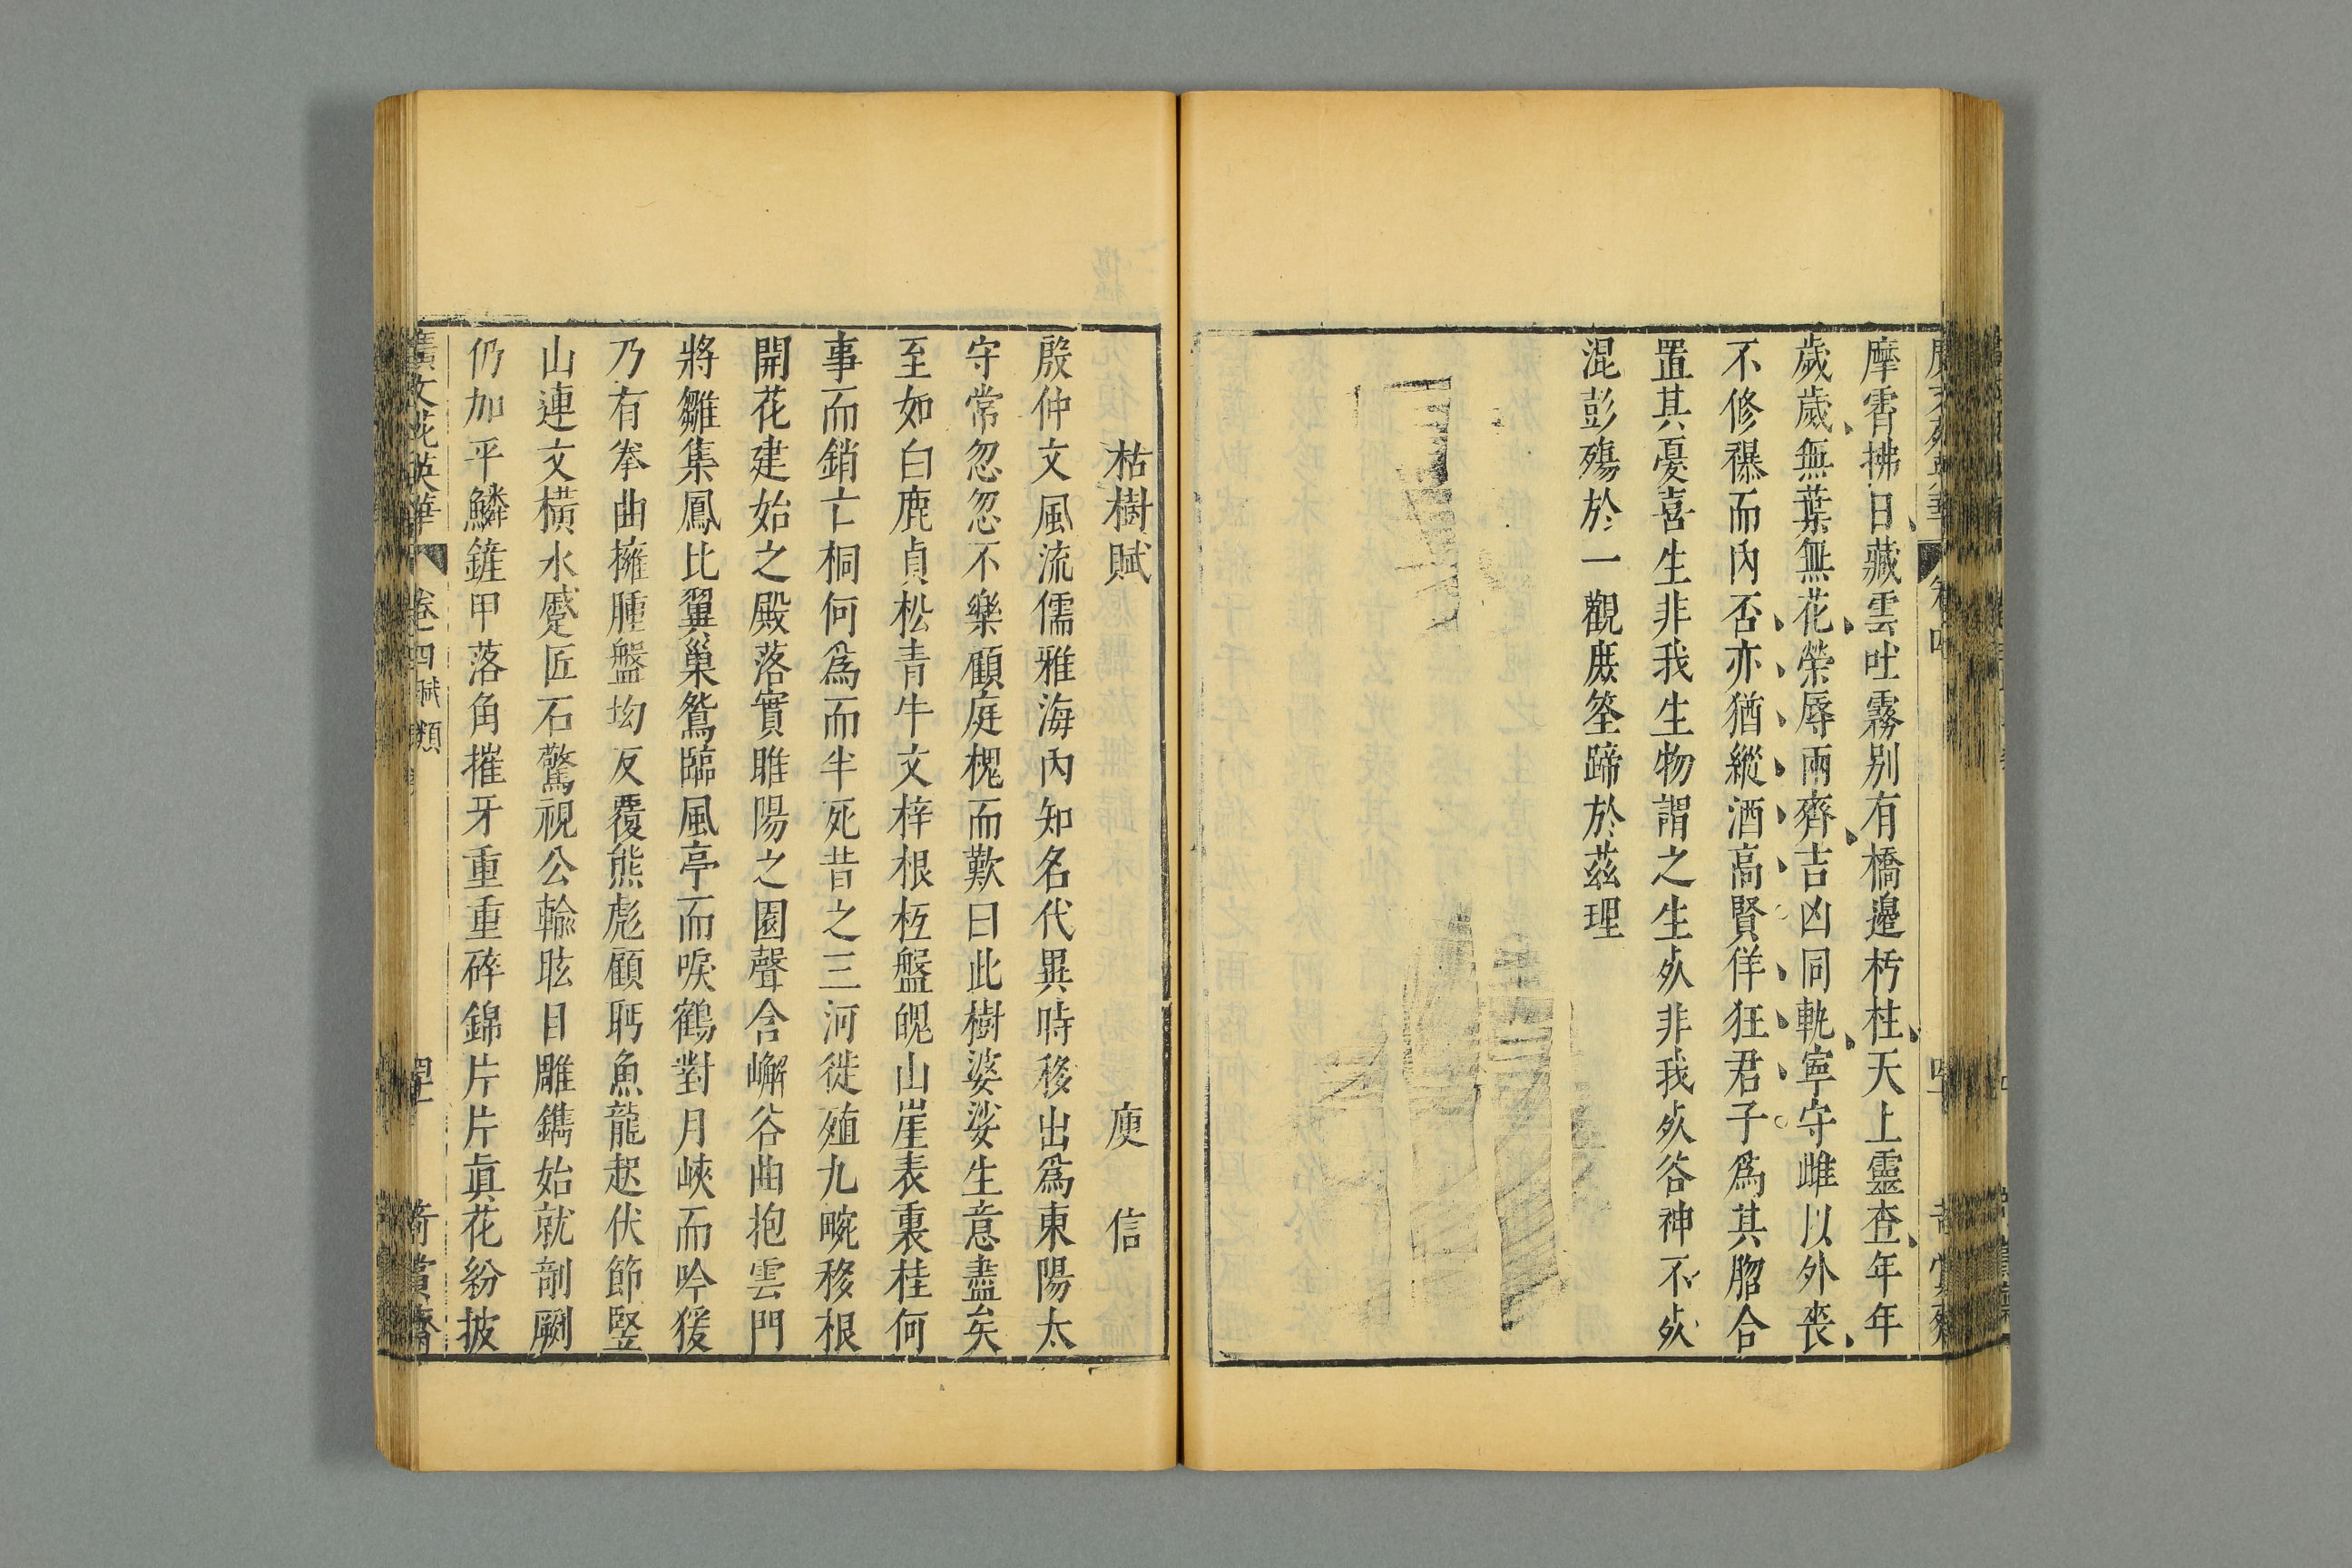 摩霄拂日藏雲吐霧別有橋邊朽柱天上靈查年年
歲歲無葉無花榮辱兩齊吉凶同軌寧守雌以外喪
不修襮而內否亦猶縱酒高賢佯狂君子爲其脗合
置其憂喜生非我生物謂之生死非我死谷神不死
混彭殤於一觀庶筌蹄於茲理
枯樹賦
庾信
殷仲文風流儒雅海內知名代異時移出爲東陽太
守常忽忽不樂顧庭槐而歎曰此樹婆娑生意盡矣
至如白鹿貞松青牛文梓根柢盤魄山崖表裏桂何
事而銷亡桐何爲而半死昔之三河徙殖九畹移根
開花建始之殿落實睢陽之園聲含嶰谷曲抱雲門
將雛集鳳比翼巢鴛臨風亭而唳鶴對月峽而吟猨
乃有拳曲擁腫盤坳反覆熊彪顧盻魚龍起伏節竪
山連文橫水蹙匠石驚視公輸眩目雕鐫始就剞劂
仍加平鱗鏟甲落角摧牙重重碎錦片片真花紛披
廣文苑英華 卷四 賦類